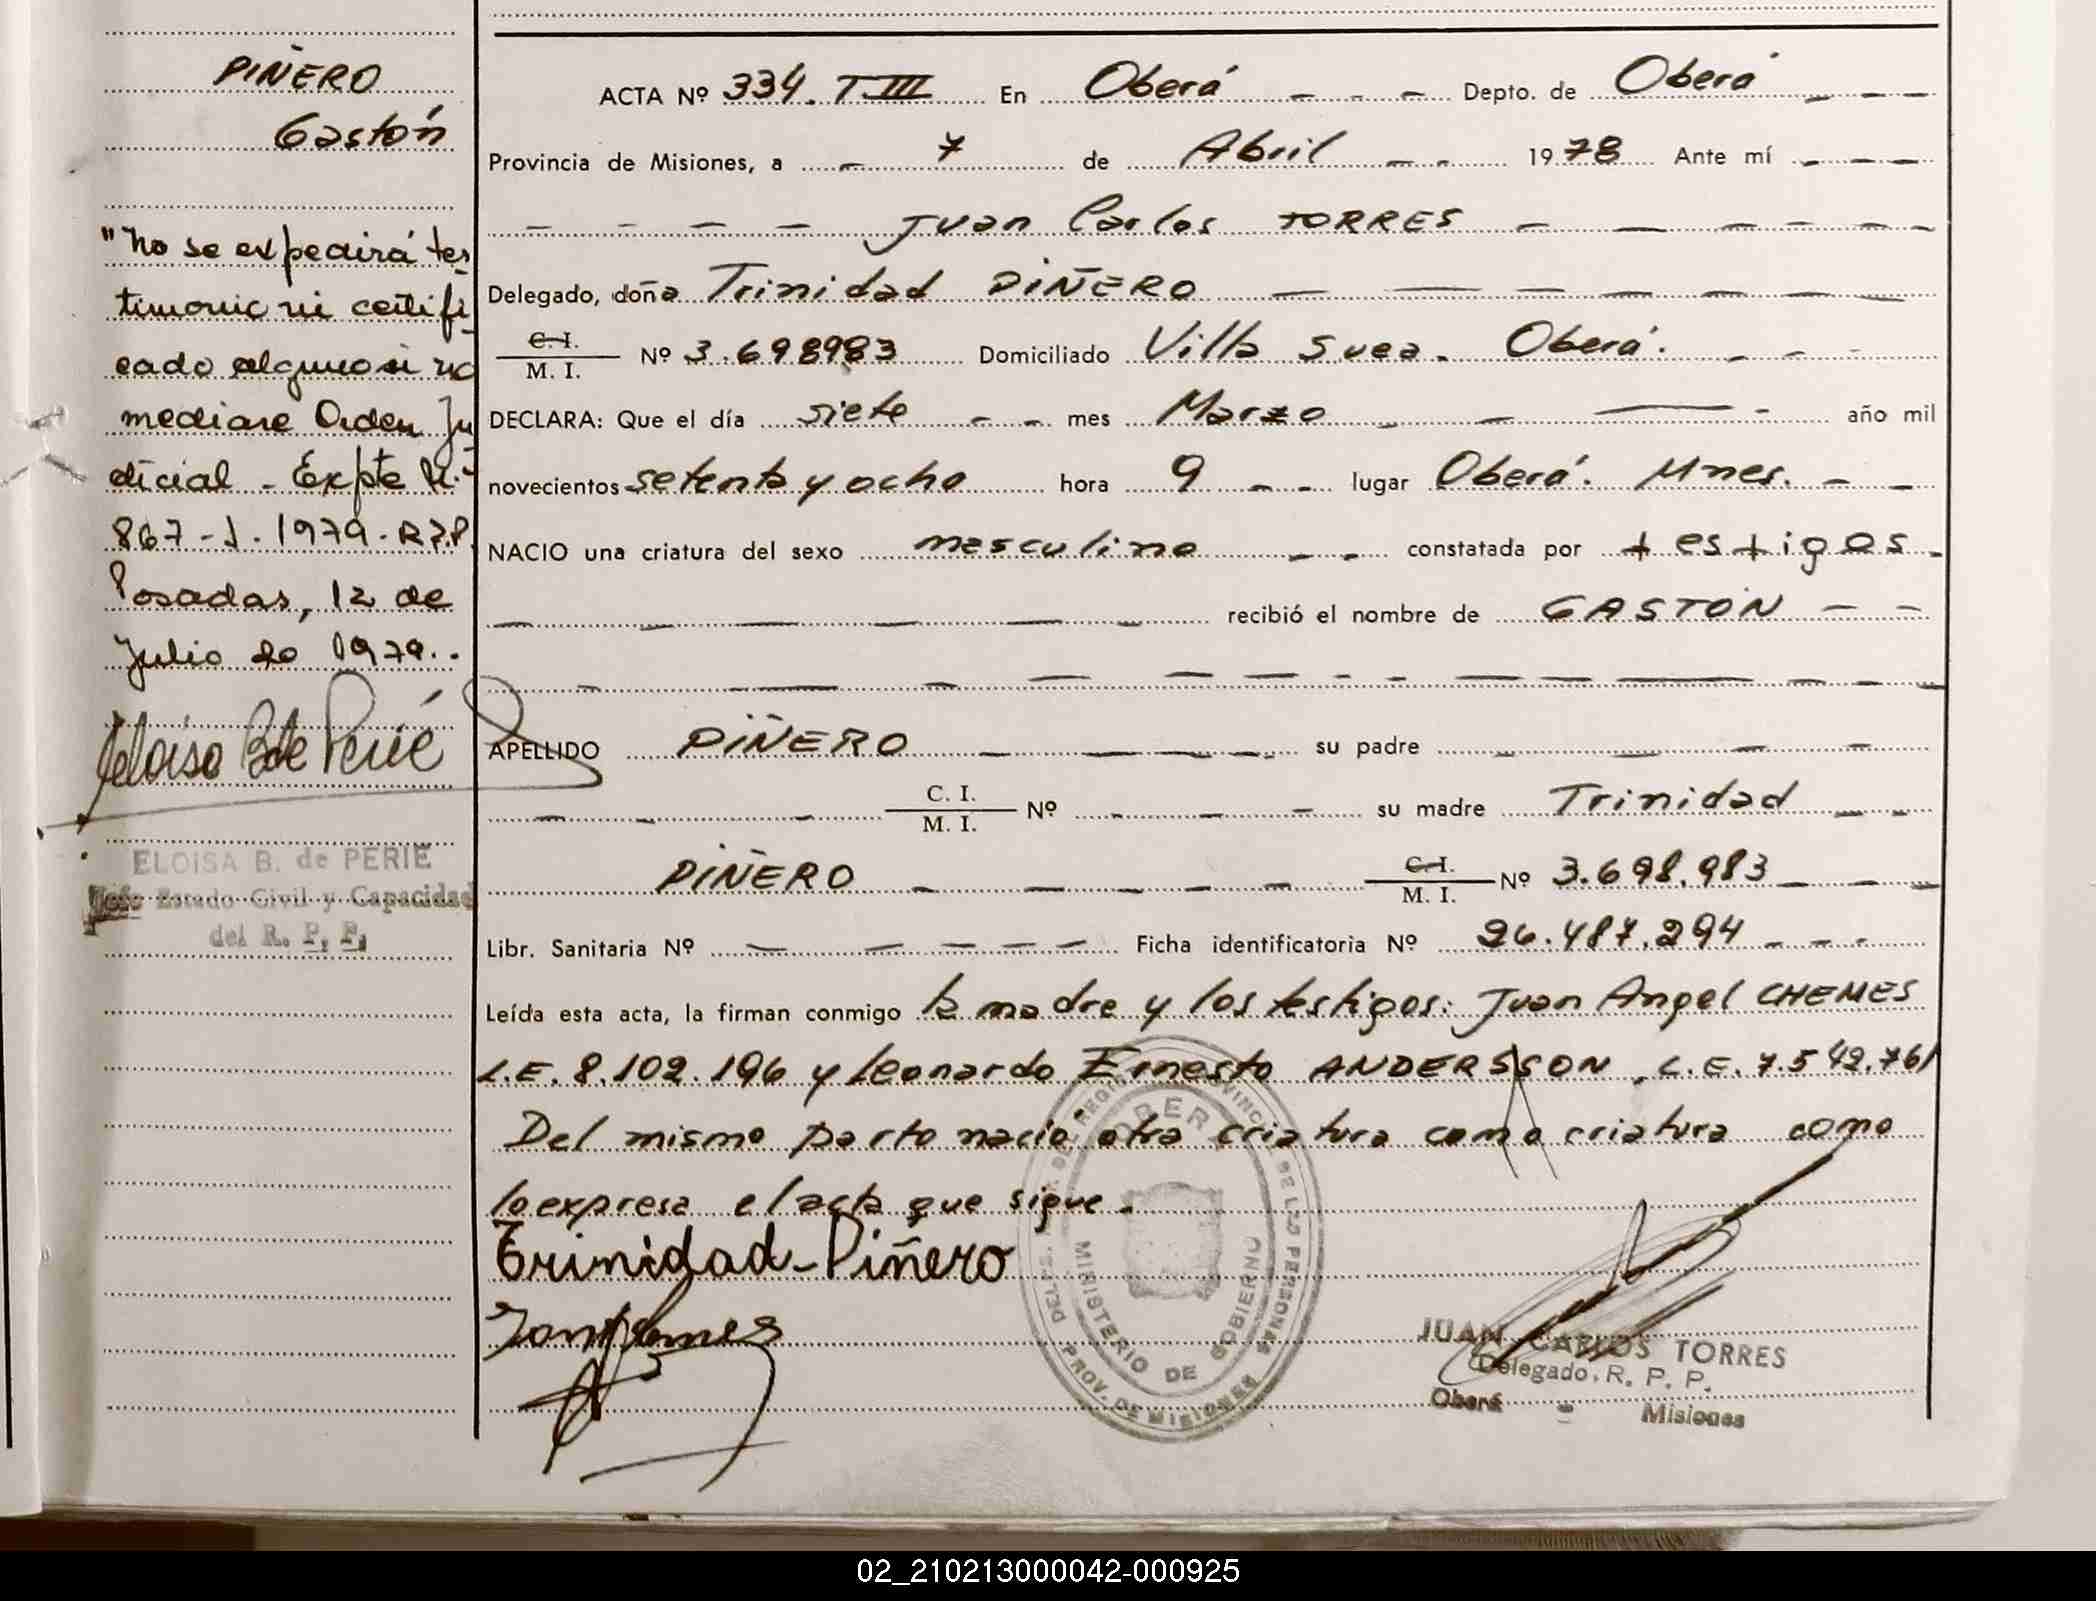 PIÑERO
Gastón
"No se expedirá tes
timonio ni certifi
cado alguno si no
mediare Orden Ju
dicial - Expte N.º
867-J-1979-R.P.P.
Posadas, 12 de
Julio de 1979..
Eloisa B de Perié
ELOISA B. de PERIE
Jefe Estado Civil y Capacidad
del R. P. P.
ACTA Nº 334. T III En Oberá - - - Depto. de Oberá - - -
Provincia de Misiones, a - 7 de Abril - - 1978 Ante mí - - -
- - - - Juan Carlos TORRES - - - - - -
Delegado, doña Trinidad PIÑERO - - - - - - -
C. I.
M. I. Nº 3.698983 Domiciliado Villa Suea. Oberá. - - -
DECLARA: Que el día siete - - mes Marzo - - - - año mil
novecientos setenta y ocho hora 9 - - lugar Oberá. Mnes. - -
NACIO una criatura del sexo masculino - - constatada por testigos -
- - - - - - recibió el nombre de GASTON - -
- - - - - - - - - - - - -
APELLIDO PIÑERO - - - - - su padre - - - -
- - - C. I.
M. I. Nº - - - su madre Trinidad - -
PIÑERO - - - - C. I.
M. I. Nº 3.698.983 - - -
Libr. Sanitaria Nº - - - - - Ficha identificatoria Nº 26.487.294 - - -
Leída esta acta, la firman conmigo la madre y los testigos: Juan Angel CHEMES
L.E. 8.102.196 y Leonardo Ernesto ANDERSSON, L.E. 7.542.761
Del mismo parto nació otra criatura como criatura como
lo expresa el acta que sigue.
Trinidad-Piñero
OBERA
MINISTERIO DE GOBIERNO
PROV. DE MISIONES
JUAN CARLOS TORRES
Delegado, R. P. P.
Oberá - Misiones
02_210213000042-000925